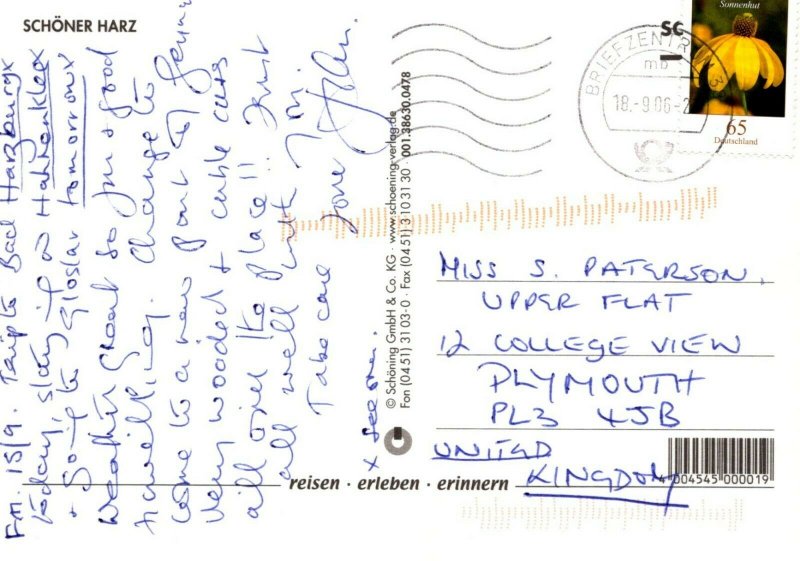 SCHÖNER HARZ
Fri. 15/9. Trip to Bad Harzburg x
today, staying in Hahnenklee x
+ Going to Goslar tomorrow x
weather Great so I'm a good
travelling. Change to
come to a new part of
very wooded + cable cars
all over the place!! Trust
all well with
Take care
Love John.
x See soon.
© Schöning GmbH & Co. KG · www.schoening-verlag.de
Fon (04 51) 31 03-0 · Fax (04 51) 3 10 31 30 · 001.38630.0478
Sonnenhut
65
Deutschland
BRIEFZENTRUM
mb
18.-9.06-2
MISS S. PATERSON.
UPPER FLAT
12 COLLEGE VIEW
PLYMOUTH
PL3 4JB
UNITED
KINGDOM
4 004545 000019
reisen · erleben · erinnern